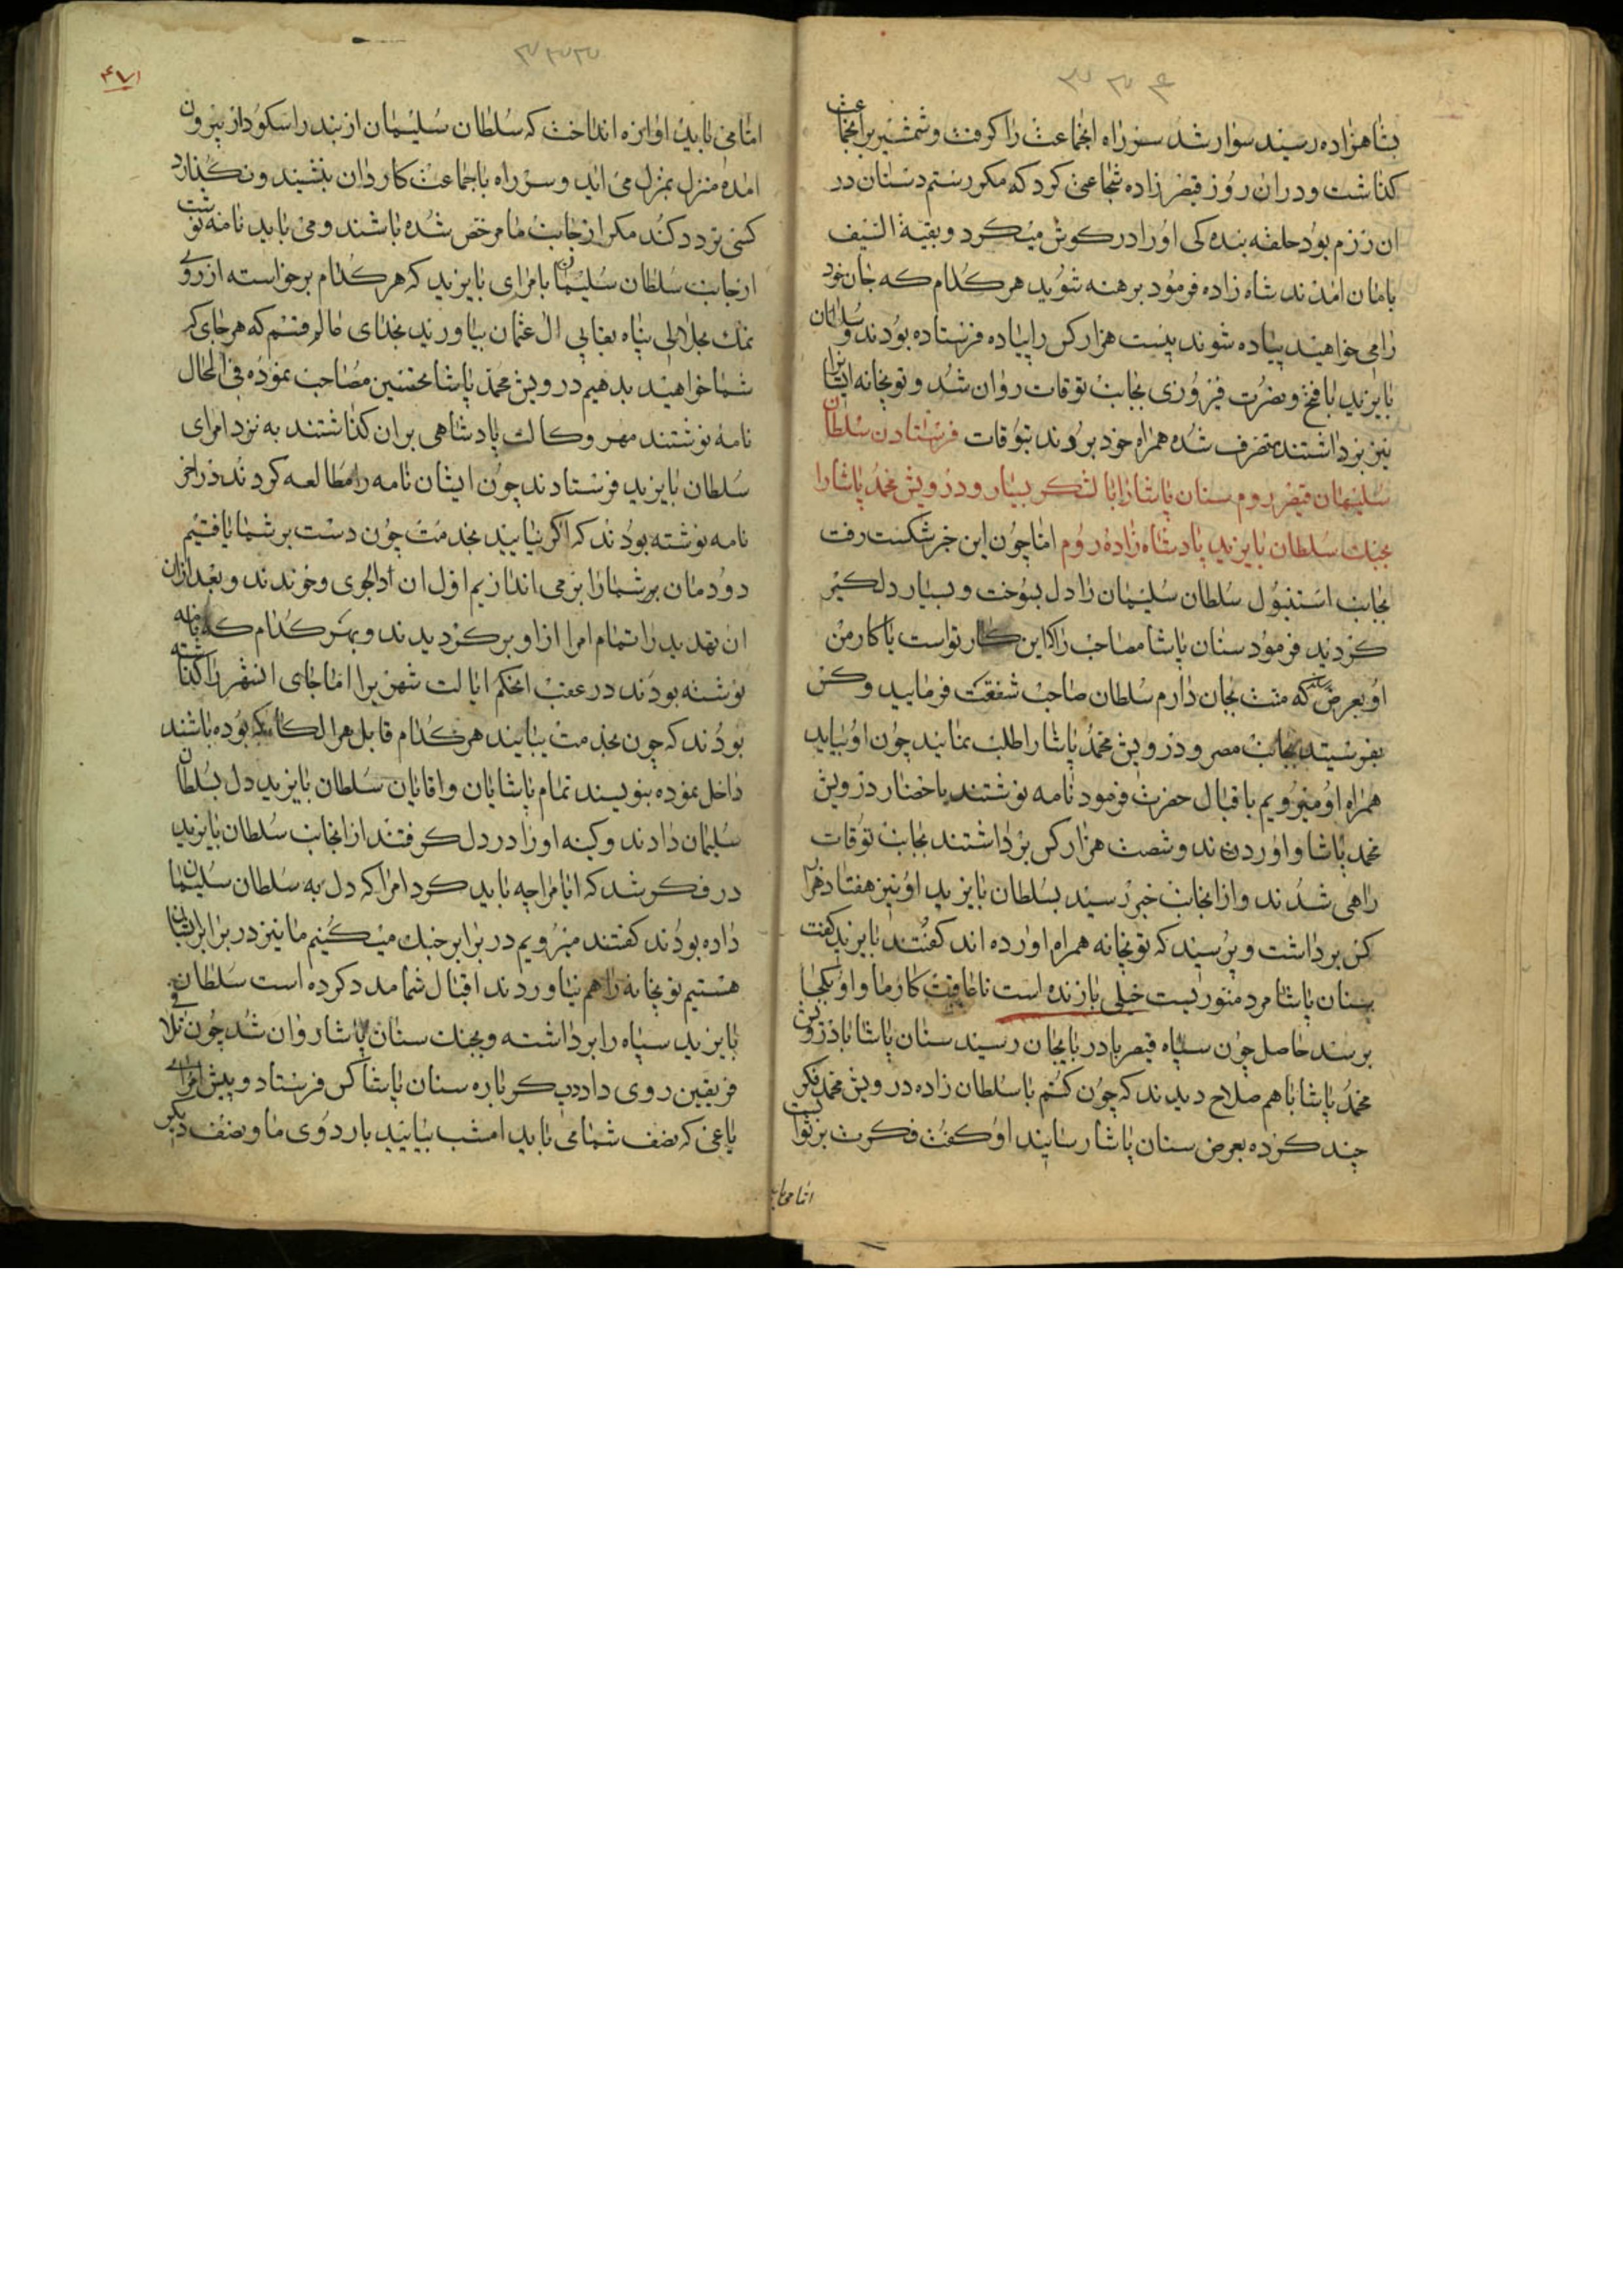 بشاهزاده رسیند سوار شد سر راه انجماعت را کرفت و شمشیر بر انجماعت
کذاشت و دران روز قیصر زاده شجاعتی کرد که مکر رستم دستان در
ان رزم بود حلقه بنده کی او را در کوش میکرد و بقیة السیف
بامان امدند شاه زاده فرمود برهنه شوید هر کدام که جان خود
را می خواهید پیاده شوند بیست هزار کس را پیاده فرستاده بودند و سلطان
بایزید با فتح و نصرت فیروزی بجانب توقات روان شد و توپخانه ایشانرا
نیز برداشتند متصرف شده همراه خود بردند بتوقات فرستادن سلطان
سلیمان قیصر روم سنان پاشا را با لشکر بسیار و درویش محمد پاشا را
بجنک سلطان بایزید پادشاه زاده روم اما چون این خبر شکست رفت
بجانب استنبول سلطان سلیمان را دل بسوخت و بسیار دلکیر
کردید فرمود سنان پاشا مصاحب را که این کار تو است یا کار من
او بعرض رساند که منت بجان دارم سلطان صاحب شفقت فرمایید و کس
بفرستید بجانب مصر و درویش محمد پاشا را طلب نمائید چون او بیاید
همراه او میرویم باقبال حضرت فرمود نامه نوشتند باحضار درویش
محمد پاشا و اوردن ند و شصت هزار کس برداشتند بجانب توقات
راهی شدند و ازانجانب خبر رسید بسلطان بایزید او نیز هفتاد هزار
کس برداشت و پرسید که توپخانه همراه اورده اند کفتند بایزید کفت
سنان پاشا مرد متوریست خیلی بازنده است تا عاقبت کار ما و او بکجا
برسد حاصل چون سپاه قیصر بادربایجان رسید سنان پاشا با درویش
محمد پاشا با هم صلاح دیدند که چون کنم با سلطان زاده درویش محمد فکر
چند کرده بعرض سنان پاشا رسانید او کفت فکرت بر ثوابست
اما می باید
۴۷۱
اما می باید اوازه انداخت که سلطان سلیمان از بندر اسکودار بیرون
امده منزل بمنزل می اید و سر راه با جماعت کاردان بنشیند و نکذارد
کسی تردد کند مکر از جانب ما مرخص شده باشند و می باید نامه نوشت
از جانب سلطان سلیمان بامرای بایزید که هر کدام برخواسته از روی
نمک بجلالی پناه بعنایی ال عثمان بیاورید بخدای عالم قسم که هر جای که
شما خواهید بدهیم درویش محمد پاشا تحسین مصاحب نموده فی الحال
نامه نوشتند مهر وکالت پادشاهی بران کذاشتند به نزد امرای
سلطان بایزید فرستادند چون ایشان نامه را مطالعه کردند در اخر
نامه نوشته بودند که اکر نیایید بخدمت چون دست بر شما یافتیم
دودمان بر شما را بر می اندازیم اول ان دلجوی و خوندند و بعد ازان
ان تهدید را تمام امرا از او برکردیدند و بهر کدام که نامه
نوشته بودند در عقب انحکم ایالت شهریرا اما جای انشهر را کذاشته
بودند که چون بخدمت بیایند هر کدام قابل هر الکا که بوده باشند
داخل نموده بنویسند تمام پاشایان و اقایان سلطان بایزید دل بسلطان
سلیمان دادند و کینه او را در دل کرفتند ازانجانب سلطان بایزید
در فکر شد که ایا مرا چه باید کرد امرا که دل به سلطان سلیمان
داده بودند کفتند میرویم در برابر جنک میکنیم ما نیز در برابر ایشان
هستیم توپخانه را هم نیاوردند اقبال شما مدد کرده است سلطان
بایزید سپاه را برداشته و بجنک سنان پاشا روان شد چون تلاقی
فریقین روی داد دیکر باره سنان پاشا کس فرستاد و پیش امرای
یاغی که نصف شما می باید امشب بیایید باردوی ما و نصف دیکر